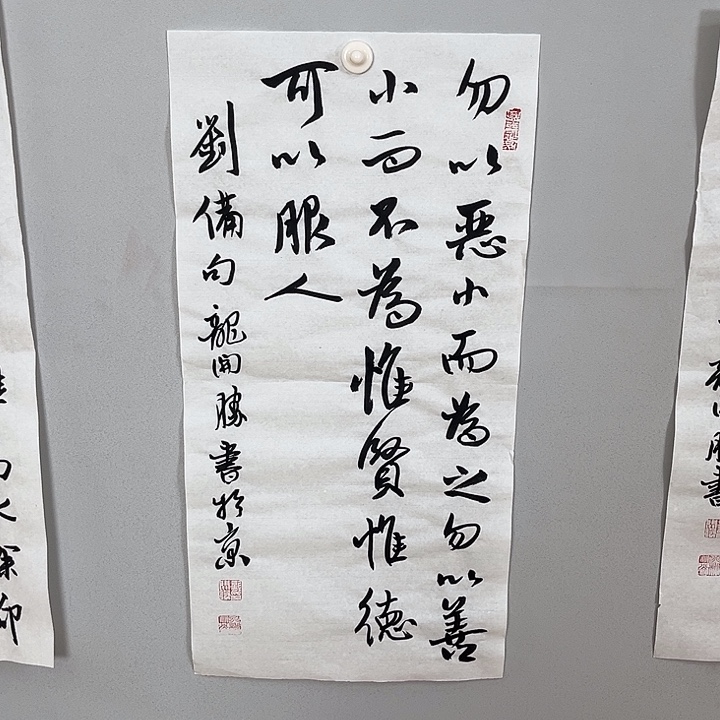 勿以惡小而為之勿以善
小而不為惟賢惟德
可以服人
劉備句龍開勝書於京